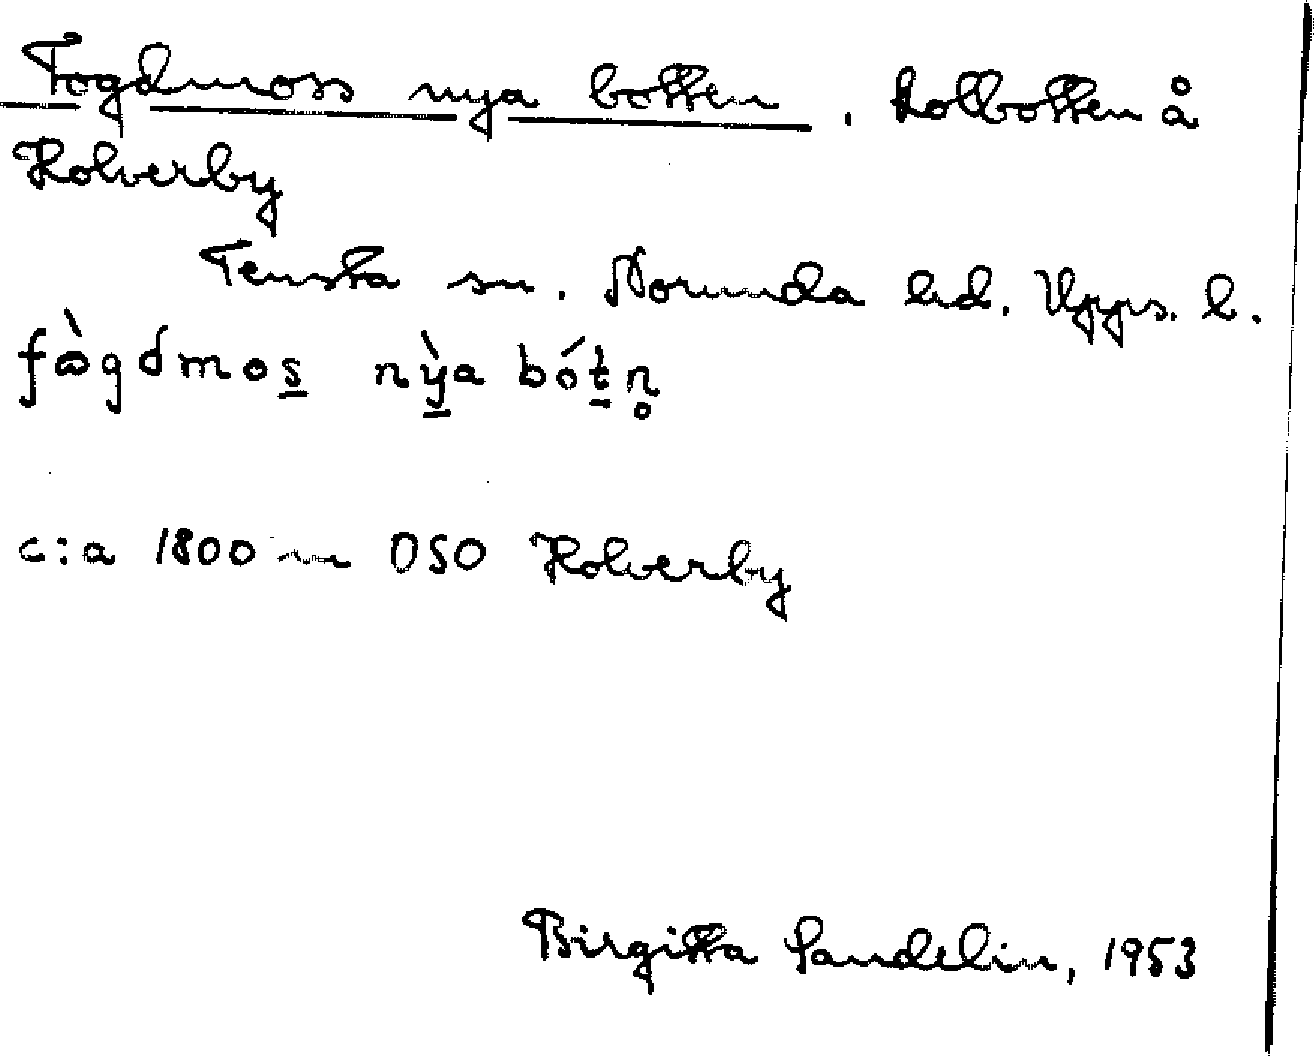 Fogdmoss nya botten. Kolbotten å
Kolverby
Tensta sn. Norunda hd. Upps. l.
fògdmos̲ nỳ̲a bót̲n̥
c:a 1800 m OSO Kolverby
Birgitta Sandelin, 1953